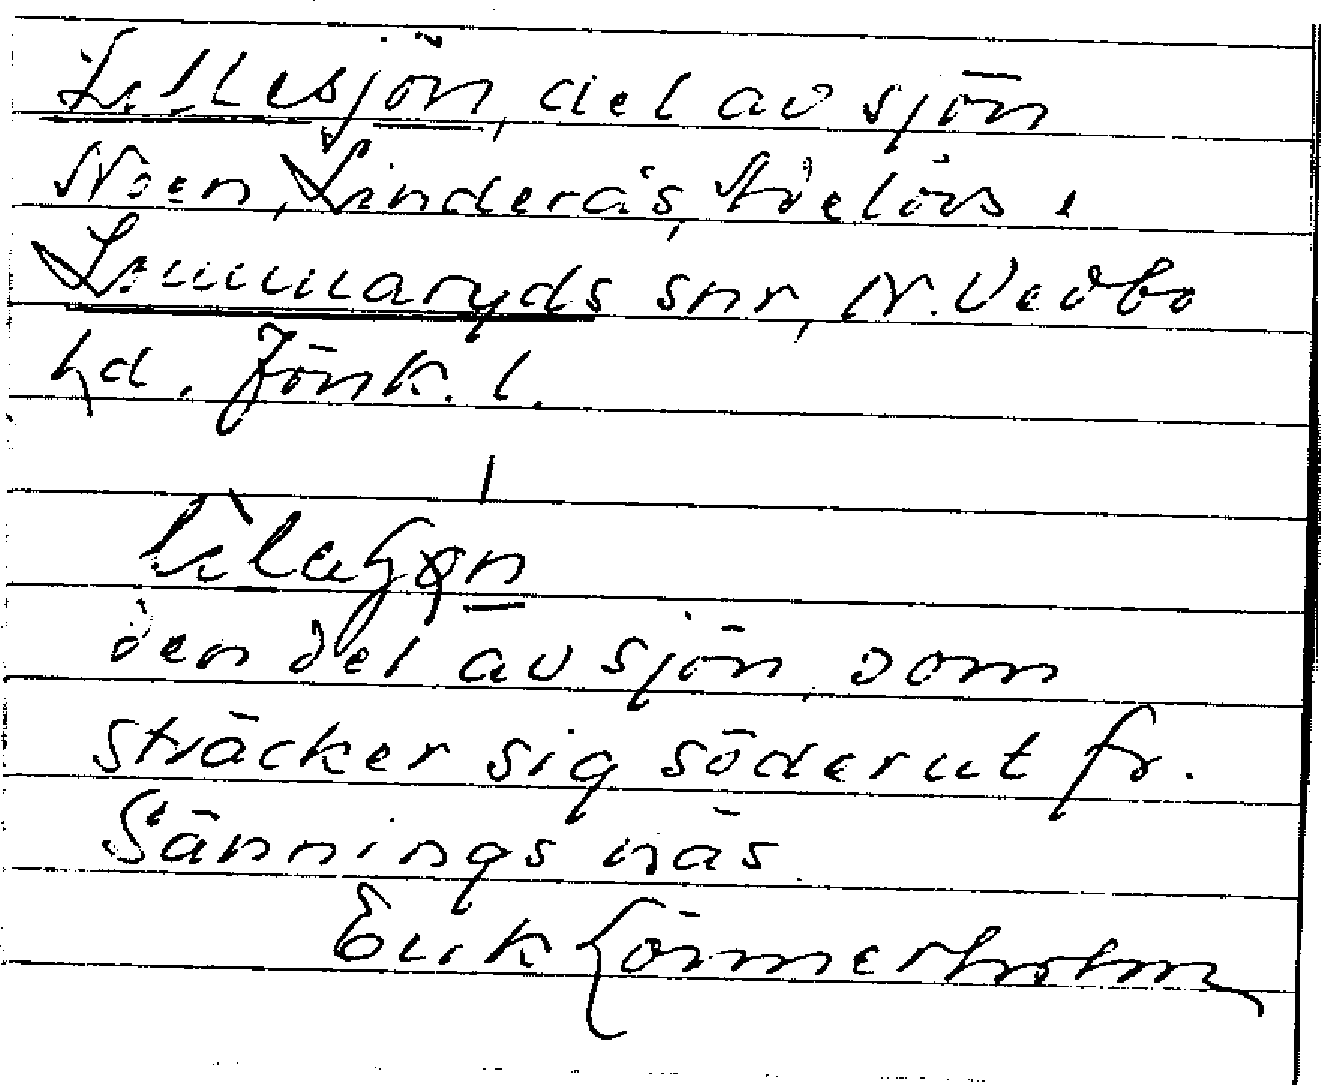 Lillesjön, del av sjön
Noen, Linderås, Frielövs,
Lommaryds snr, N. Vedbo
hd. Jönk. l.
den del av sjön, som
sträcker sig söderut fr.
Sännings näs
Erik Lönnerholm